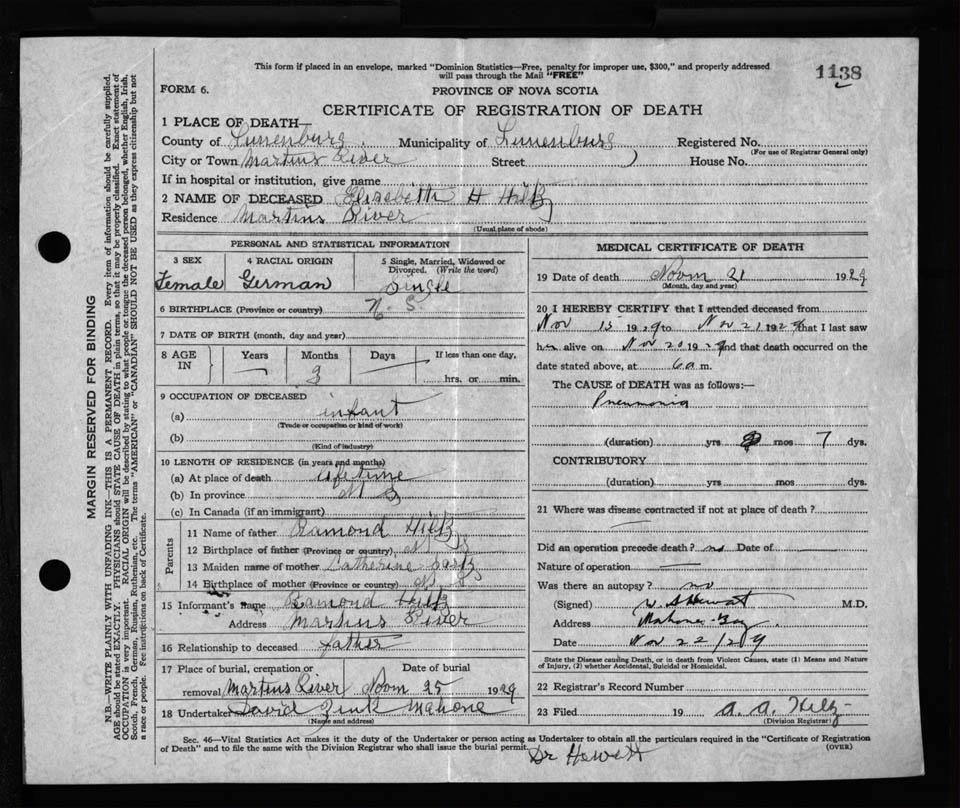 This form if placed in an envelope, marked "Dominion Statistics—Free, penalty for improper use, $300," and properly addressed
will pass through the Mail "FREE"
1138
FORM 6.
PROVINCE OF NOVA SCOTIA
CERTIFICATE OF REGISTRATION OF DEATH
1 PLACE OF DEATH—
County of Lunenburg Municipality of Lunenburg Registered No.
(For use of Registrar General only)
City or Town Martins River Street House No.
If in hospital or institution, give name
2 NAME OF DECEASED Elizabeth H Hiltz
Residence Martins River
(Usual place of abode)
PERSONAL AND STATISTICAL INFORMATION
3 SEX
Female
4 RACIAL ORIGIN
German
5 Single, Married, Widowed or
Divorced. (Write the word)
Single
6 BIRTHPLACE (Province or country) N. S.
7 DATE OF BIRTH (month, day and year)
8 AGE
IN
Years
Months
3
Days
If less than one day,
hrs. or min.
9 OCCUPATION OF DECEASED
(a) infant
(Trade or occupation or kind of work)
(b)
(Kind of industry)
10 LENGTH OF RESIDENCE (in years and months)
(a) At place of death life time
(b) In province
(c) In Canada (if an immigrant)
Parents
11 Name of father Ramond Hiltz
12 Birthplace of father (Province or country) N. S.
13 Maiden name of mother Catherine
14 Birthplace of mother (Province or country) N S
15 Informant's name Ramond Hiltz
Address Martins River
16 Relationship to deceased father
17 Place of burial, cremation or
removal Martins River
Date of burial
Novm 25 1929
18 Undertaker David Zink Mahone
(Name and address)
MEDICAL CERTIFICATE OF DEATH
19 Date of death Novm 21 1929
(Month, day and year)
20 I HEREBY CERTIFY that I attended deceased from
Nov 15 1929 to Nov 21 1929 that I last saw
her alive on Nov 20 1929 and that death occurred on the
date stated above, at 6 a m.
The CAUSE of DEATH was as follows:—
Pneumonia
(duration) yrs mos 7 dys.
CONTRIBUTORY
(duration) yrs mos dys.
21 Where was disease contracted if not at place of death?
Did an operation precede death? no Date of
Nature of operation
Was there an autopsy? no
(Signed) M.D.
Address Mahone Bay
Date Nov 22/29
State the Disease causing Death, or in death from Violent Causes, state (1) Means and Nature
of Injury, (2) whether Accidental, Suicidal or Homicidal.
22 Registrar's Record Number
23 Filed 19 A. A. Hiltz
(Division Registrar)
Sec. 46—Vital Statistics Act makes it the duty of the Undertaker or person acting as Undertaker to obtain all the particulars required in the "Certificate of Registration
of Death" and to file the same with the Division Registrar who shall issue the burial permit.
(OVER)
Dr Hewett
MARGIN RESERVED FOR BINDING
N.B.—WRITE PLAINLY WITH UNFADING INK—THIS IS A PERMANENT RECORD. Every item of information should be carefully supplied.
AGE should be stated EXACTLY. PHYSICIANS should STATE CAUSE OF DEATH in plain terms, so that it may be properly classified. Exact statement of
OCCUPATION is very important. RACIAL ORIGIN will be described by stating to what people or tongue the deceased person belonged, whether English, Irish,
Scotch, French, German, Russian, Ruthenian, etc. The terms "AMERICAN" or "CANADIAN" SHOULD NOT BE USED as they express citizenship but not
a race or people. See instructions on back of Certificate.